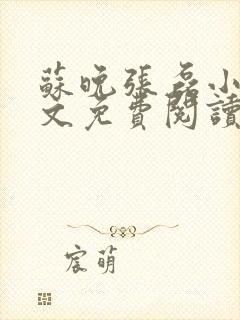 蘇晚張磊小
文免費閱讀
宸萌